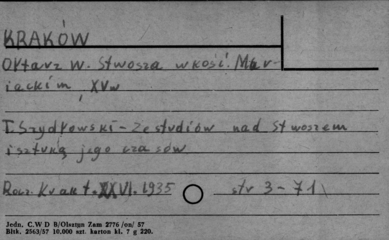 KRAKÓW
Ołtarz W. Stwosza w kość. Mar-
iackim, XVw
T. Szydłowski - Ze studiów nad Stwoszem
i sztuką jego czasów
Rocz. Krak t. XXVI. 1935 str 3-71
Jedn. C.W D B/Olsztyn Zam 2776/on/ 57
Bltk. 2563/57 10.000 szt. karton kl. 7 g 220.